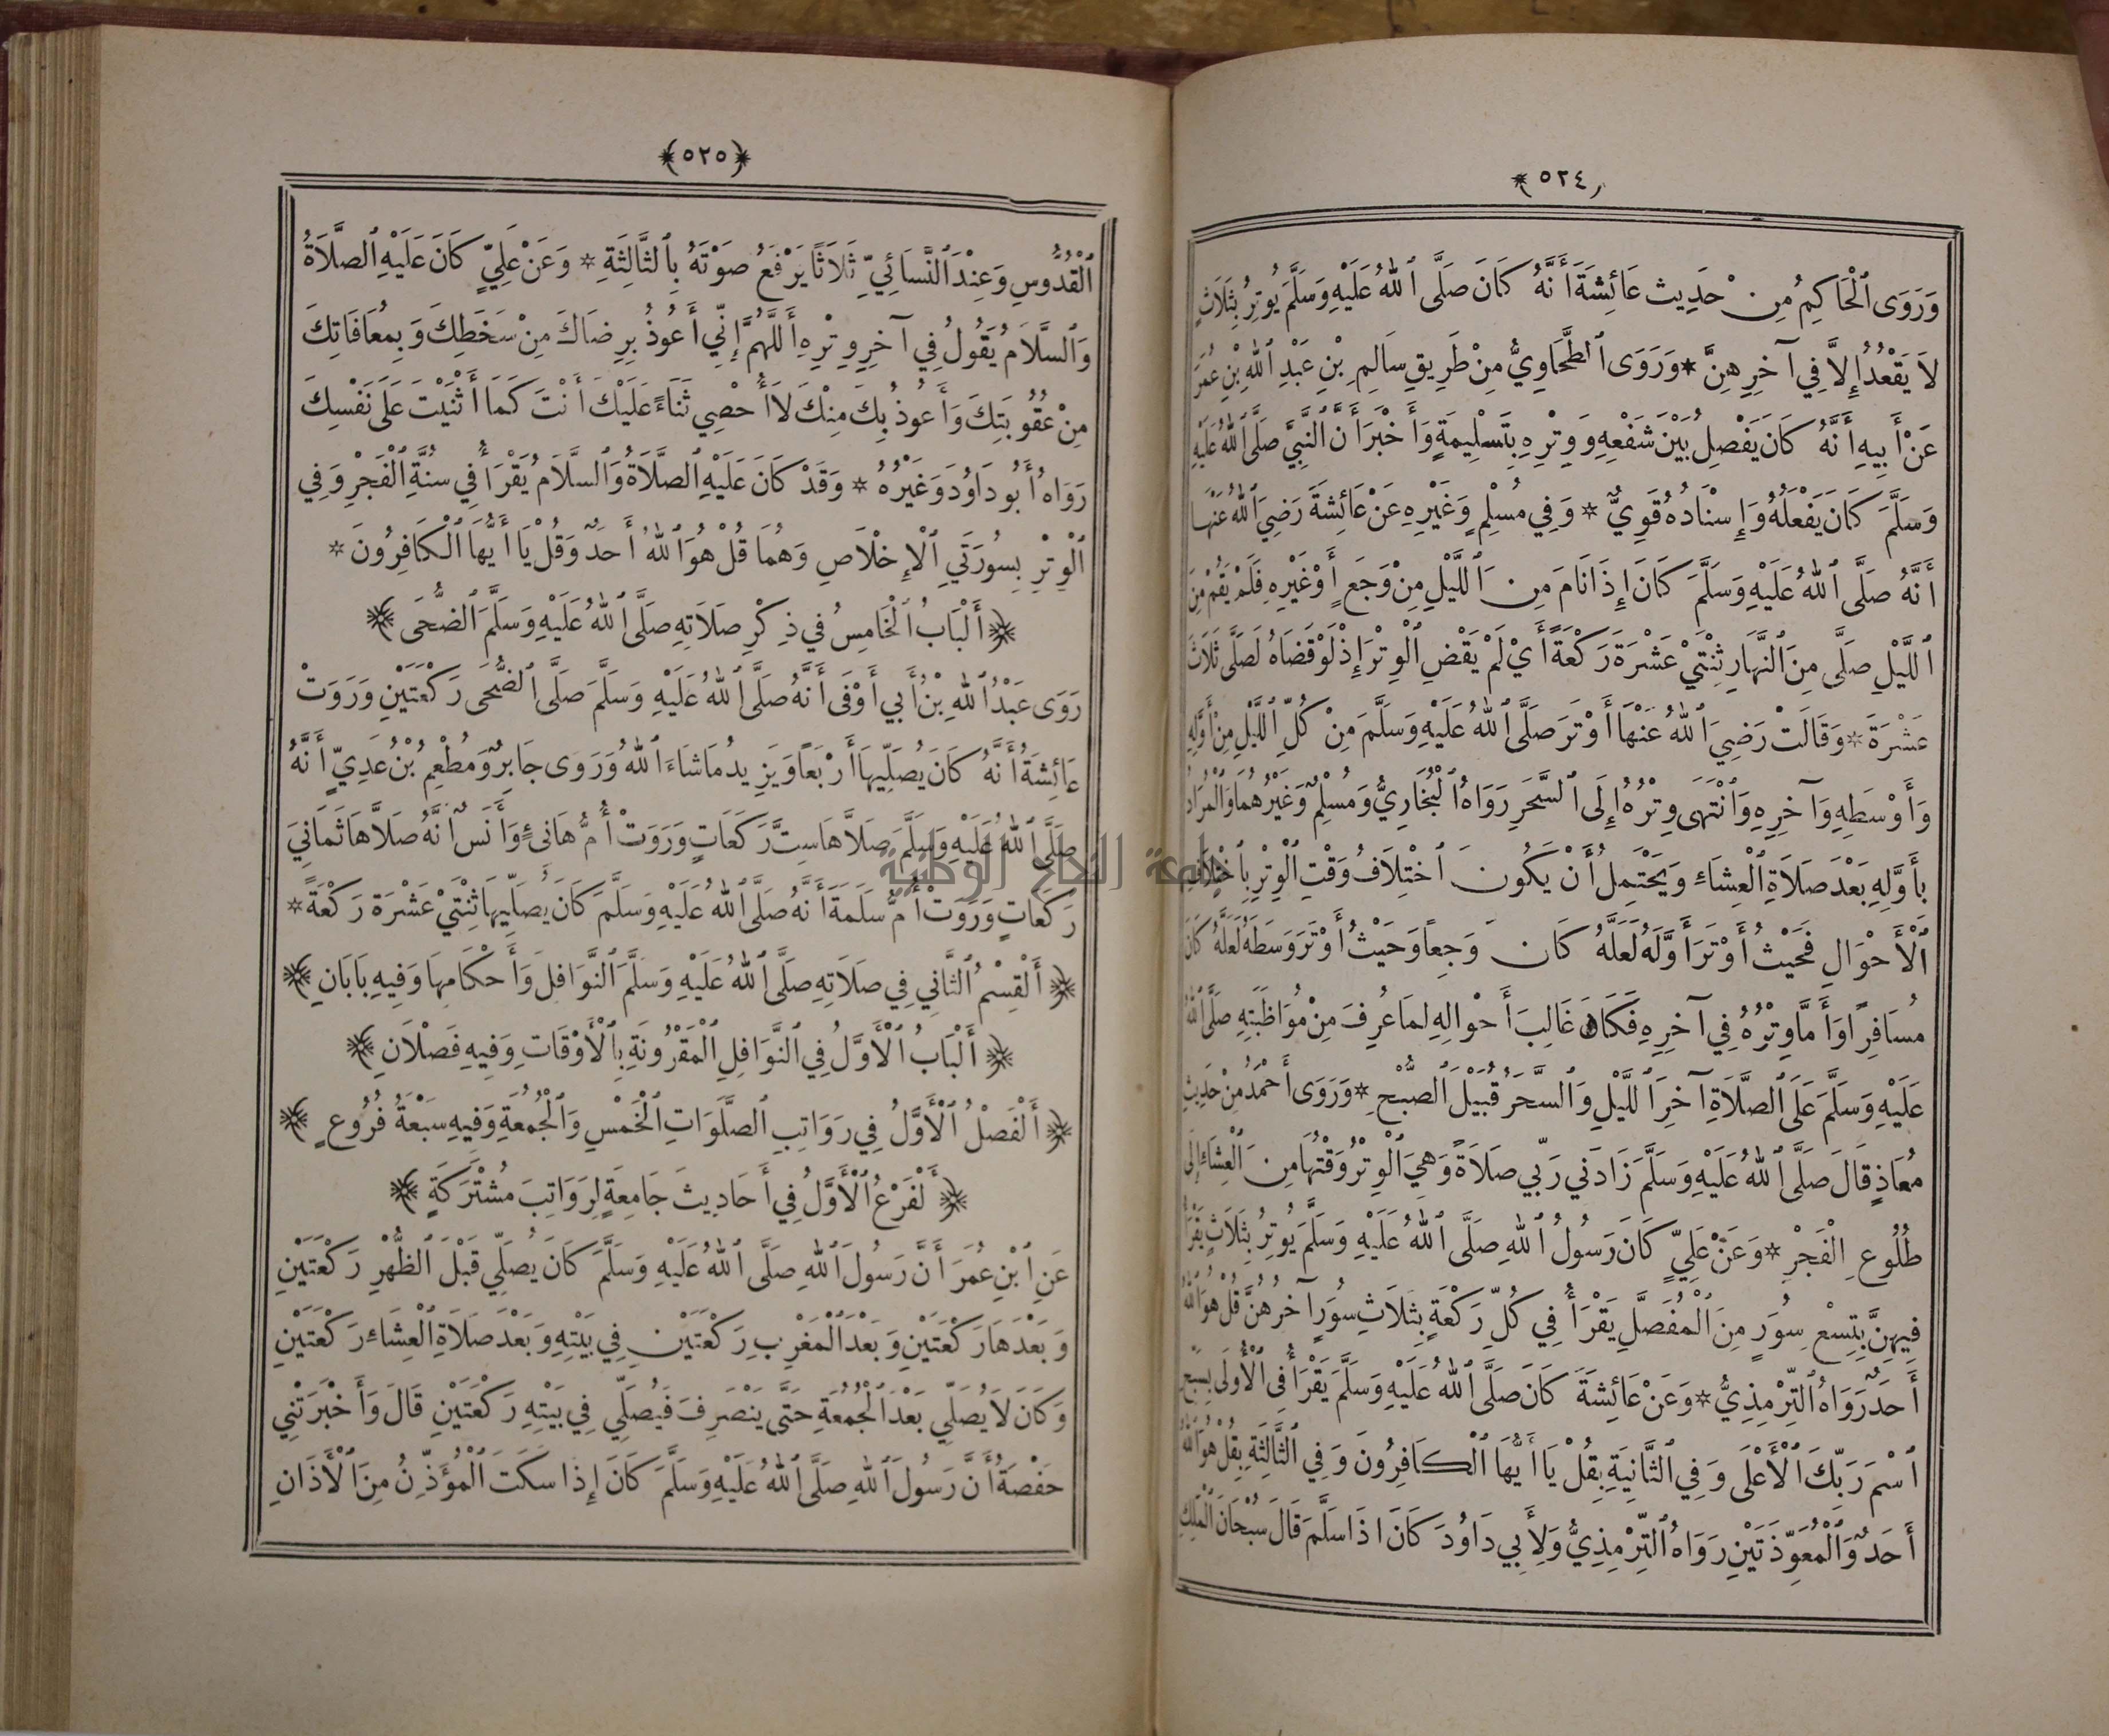 ﴿٥٢٤﴾
وَرَوَى ٱلْحَاكِمُ مِنْ حَدِيث عَائِشَةَ أَنَّهُ كَانَ صَلَّى ٱللهُ عَلَيْهِ وَسَلَّمَ يُوتِرُ بِثَلَاثٍ
لَا يَقْعُدُ إِلَّا فِي آخِرِهِنَّ * وَرَوَى ٱلطَّحَاوِيُّ مِنْ طَرِيقِ سَالِمِ بْنِ عَبْدِ ٱللهِ بْنِ عُمَرَ
عَنْ أَبِيهِ أَنَّهُ كَانَ يَفْصِلُ بَيْنَ شَفْعِهِ وَوِتْرِهِ بِتَسْلِيمَةٍ وَأَخْبَرَ أَنَّ ٱلنَّبِيَّ صَلَّى ٱللهُ عَلَيْهِ
وَسَلَّمَ كَانَ يَفْعَلُهُ وَإِسْنَادُهُ قَوِيٌّ * وَفِي مُسْلِمٍ وَغَيْرِهِ عَنْ عَائِشَةَ رَضِيَ ٱللهُ عَنْهَا
أَنَّهُ صَلَّى ٱللهُ عَلَيْهِ وَسَلَّمَ كَانَ إِذَا نَامَ مِنَ ٱللَّيْلِ مِنْ وَجَعٍ أَوْ غَيْرِهِ فَلَمْ يَقُمْ مِنَ
ٱللَّيْلِ صَلَّى مِنَ ٱلنَّهَارِ ثِنْتَيْ عَشْرَةَ رَكْعَةً أَيْ لَمْ يَقْضِ ٱلْوِتْرَ إِذْ لَوْ قَضَاهُ لَصَلَّى ثَلَاثَ
عَشْرَةَ * وَقَالَتْ رَضِيَ ٱللهُ عَنْهَا أَوْتَرَ صَلَّى ٱللهُ عَلَيْهِ وَسَلَّمَ مِنْ كُلِّ ٱللَّيْلِ مِنْ أَوَّلِهِ
وَأَوْسَطِهِ وَآخِرِهِ وَٱنْتَهَى وِتْرُهُ إِلَى ٱلسَّحَرِ رَوَاهُ ٱلْبُخَارِيُّ وَمُسْلِمٌ وَغَيْرُهُمَا وَٱلْمُرَادُ
بِأَوَّلِهِ بَعْدَ صَلَاةِ ٱلْعِشَاءِ وَيَحْتَمِلُ أَنْ يَكُونَ ٱخْتِلَافُ وَقْتِ ٱلْوِتْرِ بِٱخْتِلَافِ
ٱلْأَحْوَالِ فَحَيْثُ أَوْتَرَ أَوَّلَهُ لَعَلَّهُ كَانَ وَجِعًا وَحَيْثُ أَوْتَرَ وَسَطَهُ لَعَلَّهُ كَانَ
مُسَافِرًا وَأَمَّا وِتْرُهُ فِي آخِرِهِ فَكَانَ غَالِبَ أَحْوَالِهِ لِمَا عُرِفَ مِنْ مُوَاظَبَتِهِ صَلَّى ٱللهُ
عَلَيْهِ وَسَلَّمَ عَلَى ٱلصَّلَاةِ آخِرَ ٱللَّيْلِ وَٱلسَّحَرُ قُبَيْلَ ٱلصُّبْحِ * وَرَوَى أَحْمَدُ مِنْ حَدِيثِ
مُعَاذٍ قَالَ صَلَّى ٱللهُ عَلَيْهِ وَسَلَّمَ زَادَنِي رَبِّي صَلَاةً وَهِيَ ٱلْوِتْرُ وَقْتُهَا مِنَ ٱلْعِشَاءِ إِلَى
طُلُوعِ ٱلْفَجْرِ * وَعَنْ عَلِيٍّ كَانَ رَسُولُ ٱللهِ صَلَّى ٱللهُ عَلَيْهِ وَسَلَّمَ يُوتِرُ بِثَلَاثٍ يَقْرَأُ
فِيهِنَّ بِتِسْعِ سُوَرٍ مِنَ ٱلْمُفَصَّلِ يَقْرَأُ فِي كُلِّ رَكْعَةٍ بِثَلَاثِ سُوَرٍ آخِرُهُنَّ قُلْ هُوَ ٱللهُ
أَحَدٌ رَوَاهُ ٱلتِّرْمِذِيُّ * وَعَنْ عَائِشَةَ كَانَ صَلَّى ٱللهُ عَلَيْهِ وَسَلَّمَ يَقْرَأُ فِي ٱلْأُولَى بِسَبِّحِ
ٱسْمَ رَبِّكَ ٱلْأَعْلَى وَفِي ٱلثَّانِيَةِ بِقُلْ يَا أَيُّهَا ٱلْكَافِرُونَ وَفِي ٱلثَّالِثَةِ بِقُلْ هُوَ ٱللهُ
أَحَدٌ وَٱلْمُعَوِّذَتَيْنِ رَوَاهُ ٱلتِّرْمِذِيُّ وَلِأَبِي دَاوُدَ كَانَ اذَا سَلَّمَ قَالَ سُبْحَانَ ٱلْمَلِكِ
﴿٥٢٥﴾
ٱلْقُدُّوسِ وَعِنْدَ ٱلنَّسَائِيِّ ثَلَاثًا يَرْفَعُ صَوْتَهُ بِٱلثَّالِثَةِ * وَعَنْ عَلِيٍّ كَانَ عَلَيْهِ ٱلصَّلَاةُ
وَٱلسَّلَامُ يَقُولُ فِي آخِرِ وِتْرِهِ أَللَّهُمَّ إِنِّي أَعُوذُ بِرِضَاكَ مِنْ سَخَطِكَ وَبِمُعَافَاتِكَ
مِنْ عُقُوبَتِكَ وَأَعُوذُ بِكَ مِنْكَ لَا أُحْصِي ثَنَاءً عَلَيْكَ أَنْتَ كَمَا أَثْنَيْتَ عَلَى نَفْسِكَ
رَوَاهُ أَبُو دَاوُدَ وَغَيْرُهُ * وَقَدْ كَانَ عَلَيْهِ ٱلصَّلَاةُ وَٱلسَّلَامُ يَقْرَأُ فِي سُنَّةِ ٱلْفَجْرِ وَفِي
ٱلْوِتْرِ بِسُورَتَيِ ٱلْإِخْلَاصِ وَهُمَا قُلْ هُوَ ٱللهُ أَحَدٌ وَقُلْ يَا أَيُّهَا ٱلْكَافِرُونَ *
﴿أَلْبَابُ ٱلْخَامِسُ فِي ذِكْرِ صَلَاتِهِ صَلَّى ٱللهُ عَلَيْهِ وَسَلَّمَ ٱلضُّحَى﴾
رَوَى عَبْدُ ٱللهِ بْنُ أَبِي أَوْفَى أَنَّهُ صَلَّى ٱللهُ عَلَيْهِ وَسَلَّمَ صَلَّى ٱلضُّحَى رَكْعَتَيْنِ وَرَوَتْ
عَائِشَةُ أَنَّهُ كَانَ يُصَلِّيهَا أَرْبَعًا وَيَزِيدُ مَا شَاءَ ٱللهُ وَرَوَى جَابِرٌ وَمُطْعِمُ بْنُ عَدِيٍّ أَنَّهُ
صَلَّى ٱللهُ عَلَيْهِ وَسَلَّمَ صَلَّاهَا سِتَّ رَكَعَاتٍ وَرَوَتْ أُمُّ هَانِئٍ وَأَنَسٌ أَنَّهُ صَلَّاهَا ثَمَانِيَ
رَكَعَاتٍ وَرَوَتْ أُمُّ سَلَمَةَ أَنَّهُ صَلَّى ٱللهُ عَلَيْهِ وَسَلَّمَ كَانَ يُصَلِّيهَا ثِنْتَيْ عَشْرَةَ رَكْعَةً *
﴿أَلْقِسْمُ ٱلثَّانِي فِي صَلَاتِهِ صَلَّى ٱللهُ عَلَيْهِ وَسَلَّمَ ٱلنَّوَافِلَ وَأَحْكَامِهَا وَفِيهِ بَابَانِ﴾
﴿أَلْبَابُ ٱلْأَوَّلُ فِي ٱلنَّوَافِلِ ٱلْمَقْرُونَةِ بِٱلْأَوْقَاتِ وَفِيهِ فَصْلَانِ﴾
﴿أَلْفَصْلُ ٱلْأَوَّلُ فِي رَوَاتِبِ ٱلصَّلَوَاتِ ٱلْخَمْسِ وَٱلْجُمُعَةِ وَفِيهِ سَبْعَةُ فُرُوعٍ﴾
﴿أَلْفَرْعُ ٱلْأَوَّلُ فِي أَحَادِيثَ جَامِعَةٍ لِرَوَاتِبَ مُشْتَرَكَةٍ﴾
عَنِ ٱبْنِ عُمَرَ أَنَّ رَسُولَ ٱللهِ صَلَّى ٱللهُ عَلَيْهِ وَسَلَّمَ كَانَ يُصَلِّي قَبْلَ ٱلظُّهْرِ رَكْعَتَيْنِ
وَبَعْدَهَا رَكْعَتَيْنِ وَبَعْدَ ٱلْمَغْرِبِ رَكْعَتَيْنِ فِي بَيْتِهِ وَبَعْدَ صَلَاةِ ٱلْعِشَاءِ رَكْعَتَيْنِ
وَكَانَ لَا يُصَلِّي بَعْدَ ٱلْجُمُعَةِ حَتَّى يَنْصَرِفَ فَيُصَلِّي فِي بَيْتِهِ رَكْعَتَيْنِ قَالَ وَأَخْبَرَتْنِي
حَفْصَةُ أَنَّ رَسُولَ ٱللهِ صَلَّى ٱللهُ عَلَيْهِ وَسَلَّمَ كَانَ إِذَا سَكَتَ ٱلْمُؤَذِّنُ مِنَ ٱلْأَذَانِ